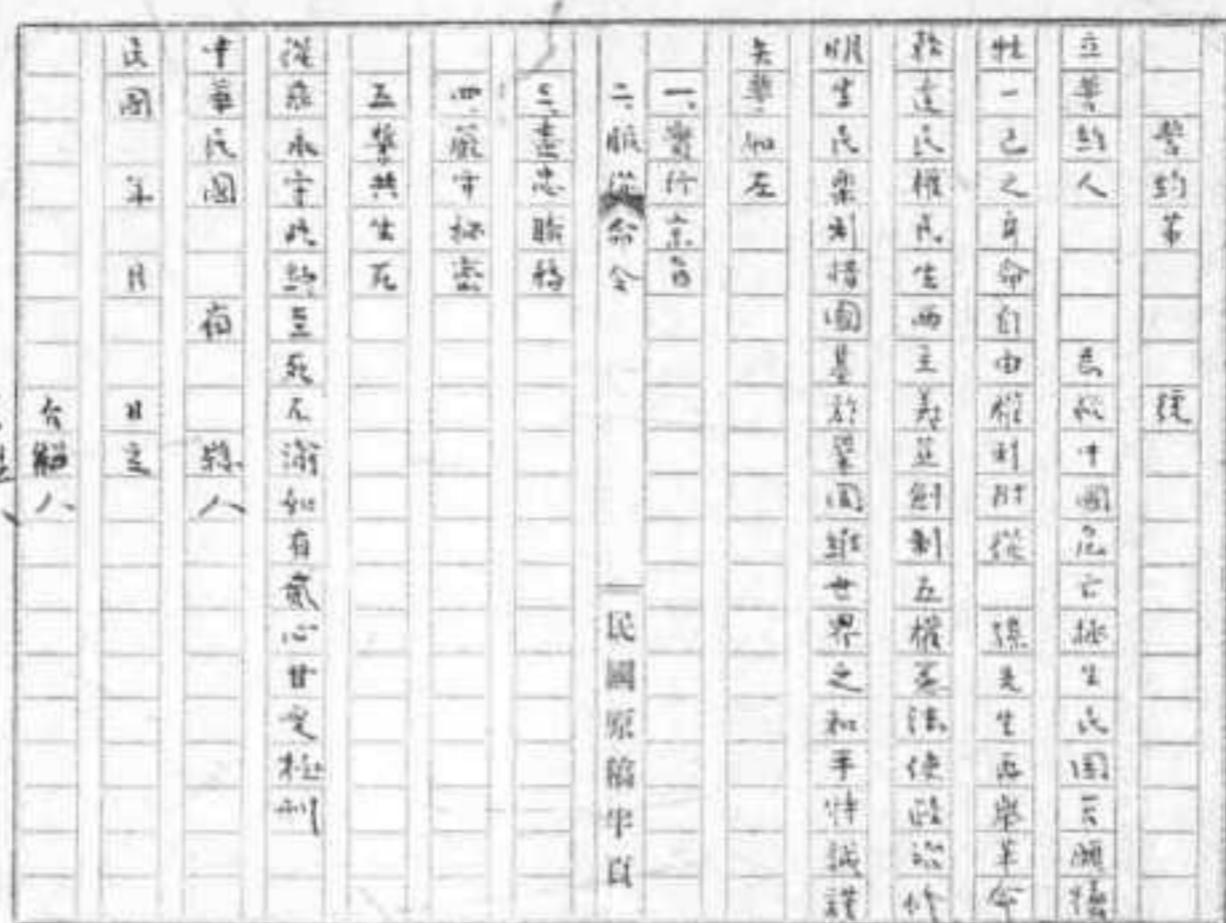 誓約第　　　號
立誓約人　　　為救中國危亡拯生民困苦願犧
牲一己之身命自由權利附從　孫先生再舉革命
務達民權民生兩主義並創制五權憲法使政治修
明生民樂利措國基於鞏固維世界之和平特誠謹
矢誓如左
一、實行宗旨
二、服從命令
三、盡忠職務
四、嚴守秘密
五、誓共生死
從茲永守此約至死不渝如有貳心甘受極刑
中華民國　　省　　縣人
民國　年　月　　日立
介紹人
民國原稿